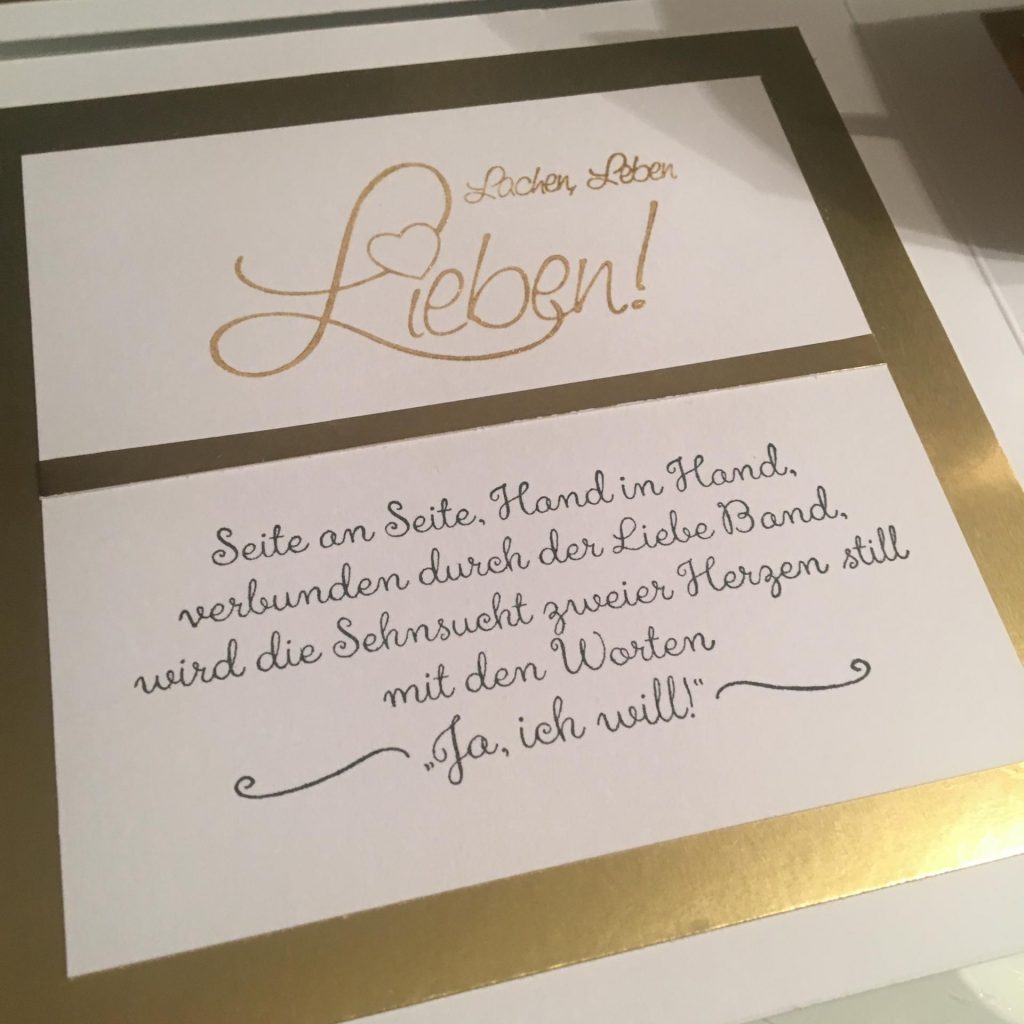 Lachen, Leben
Lieben!
Seite an Seite, Hand in Hand,
verbunden durch der Liebe Band,
wird die Sehnsucht zweier Herzen still
mit den Worten
„Ja, ich will!“